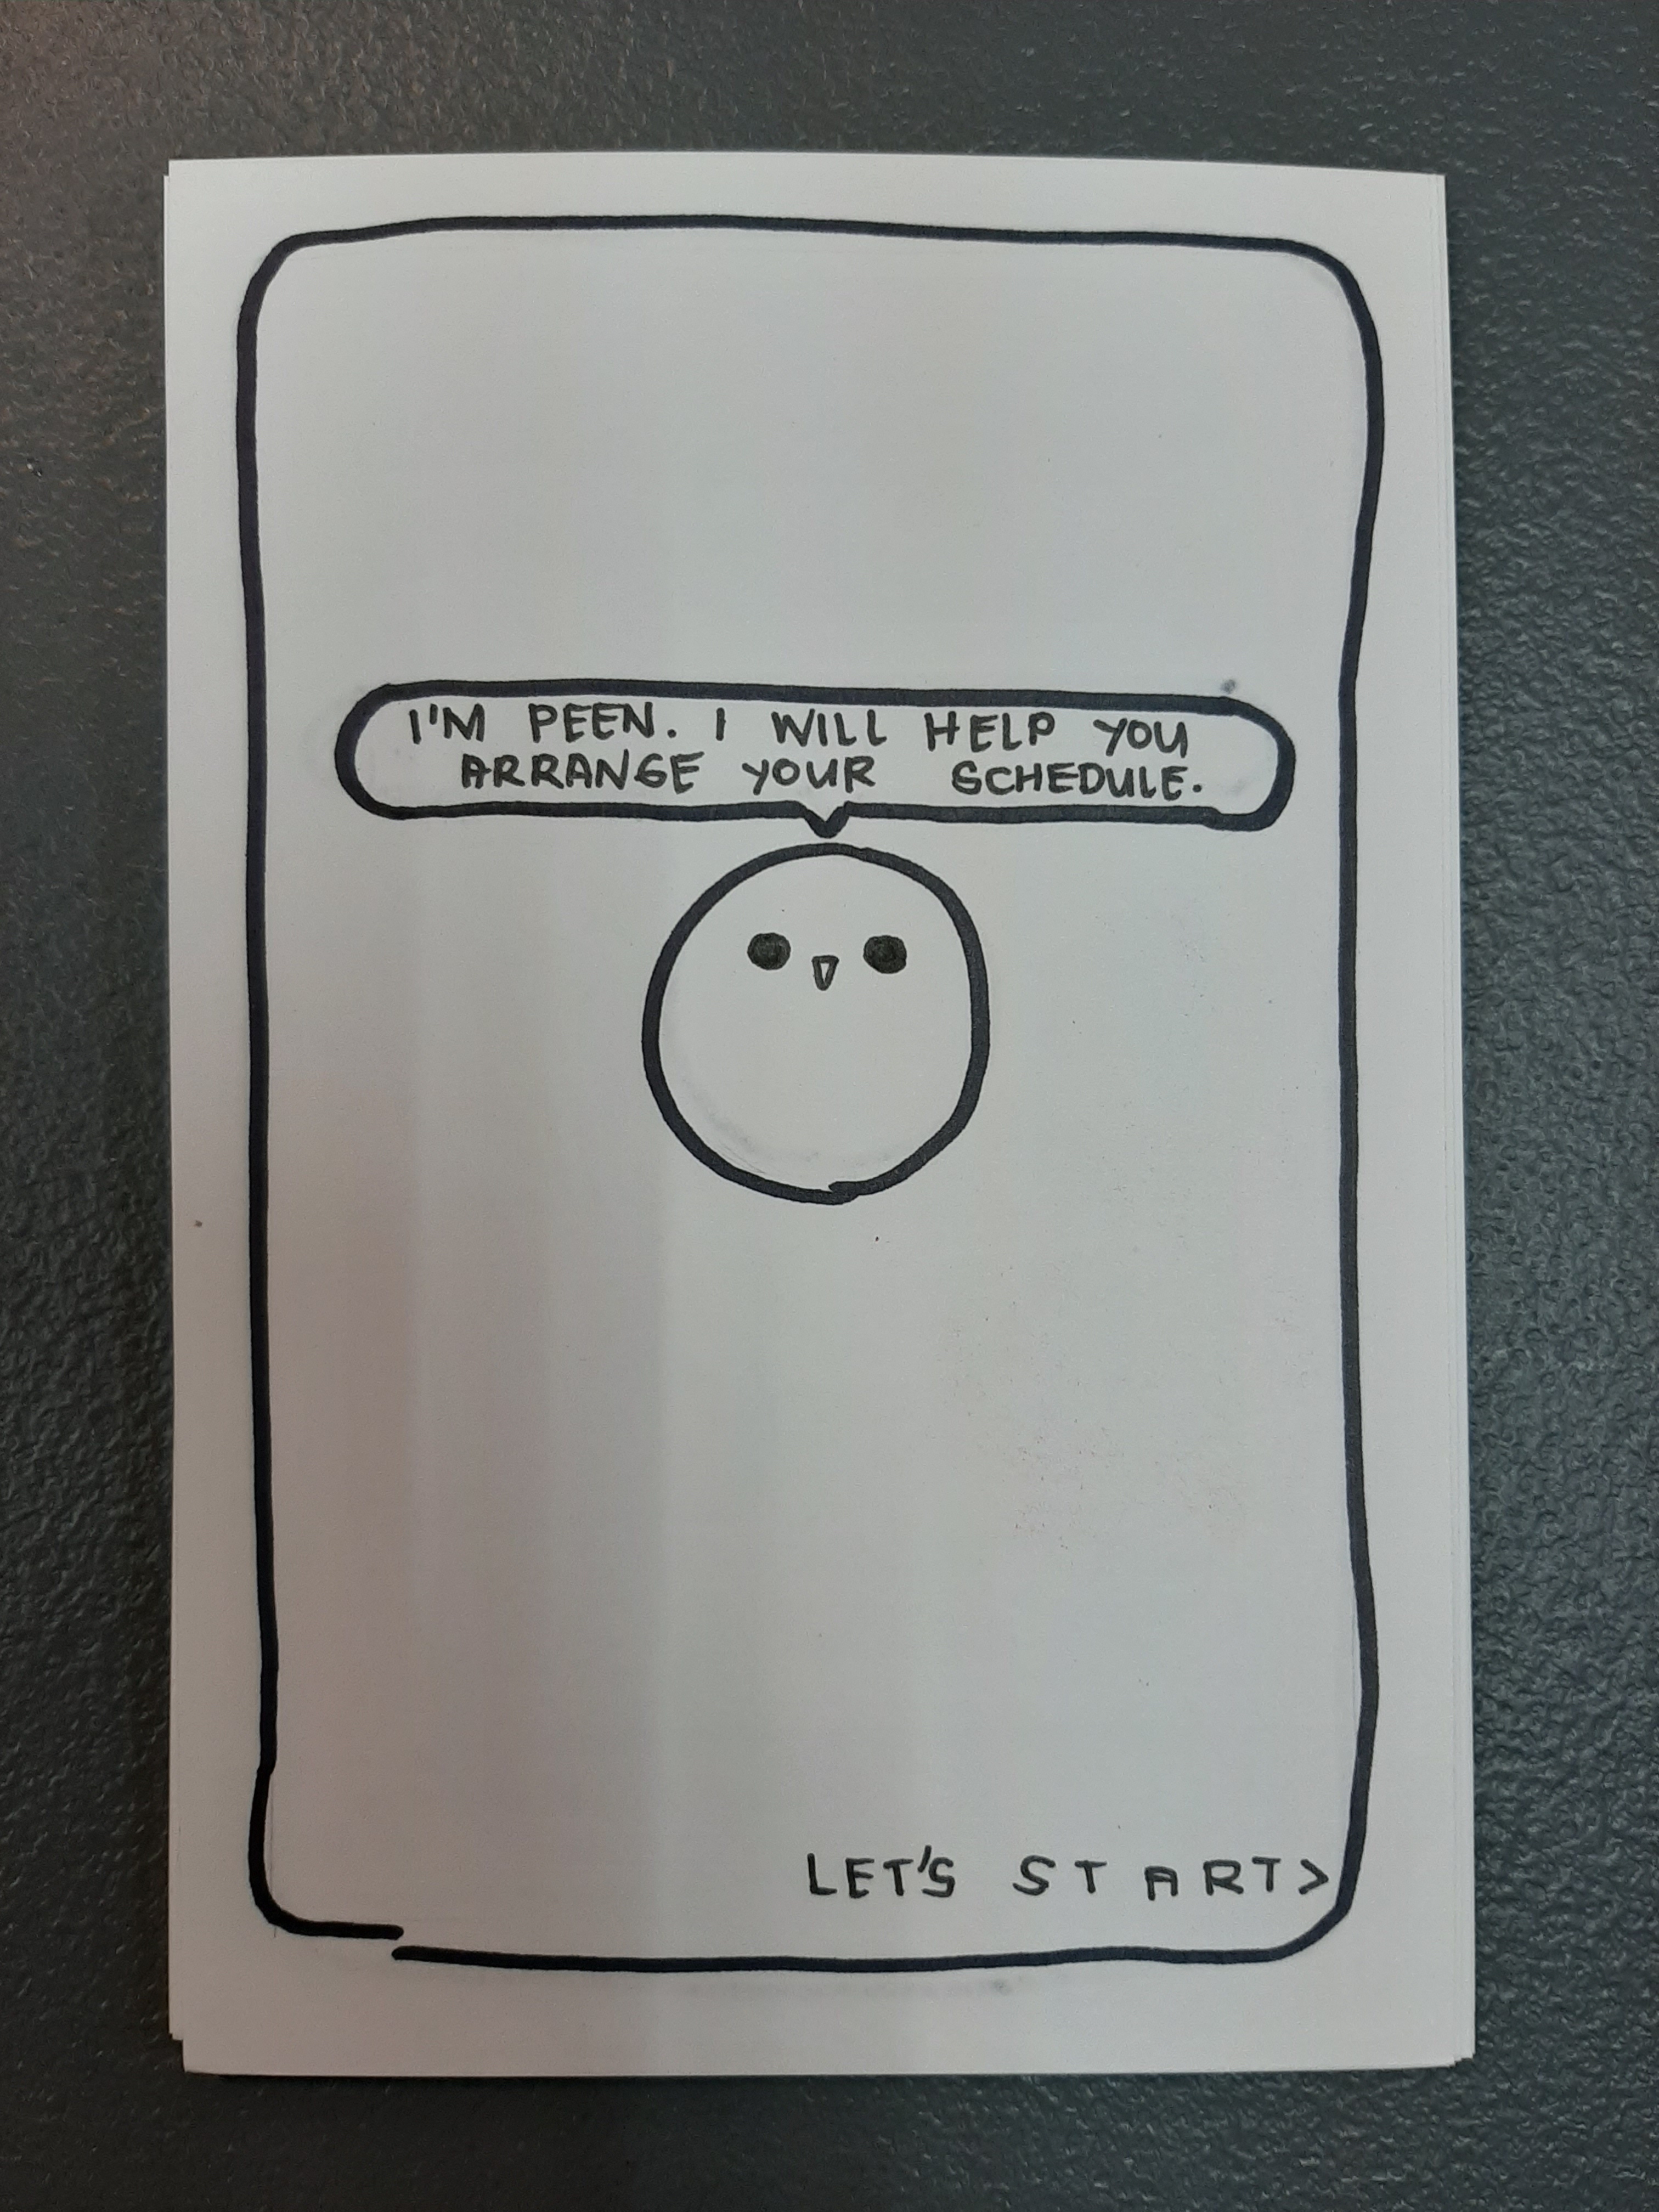 I'M PEEN. I WILL HELP YOU
ARRANGE YOUR SCHEDULE.
LET'S START>